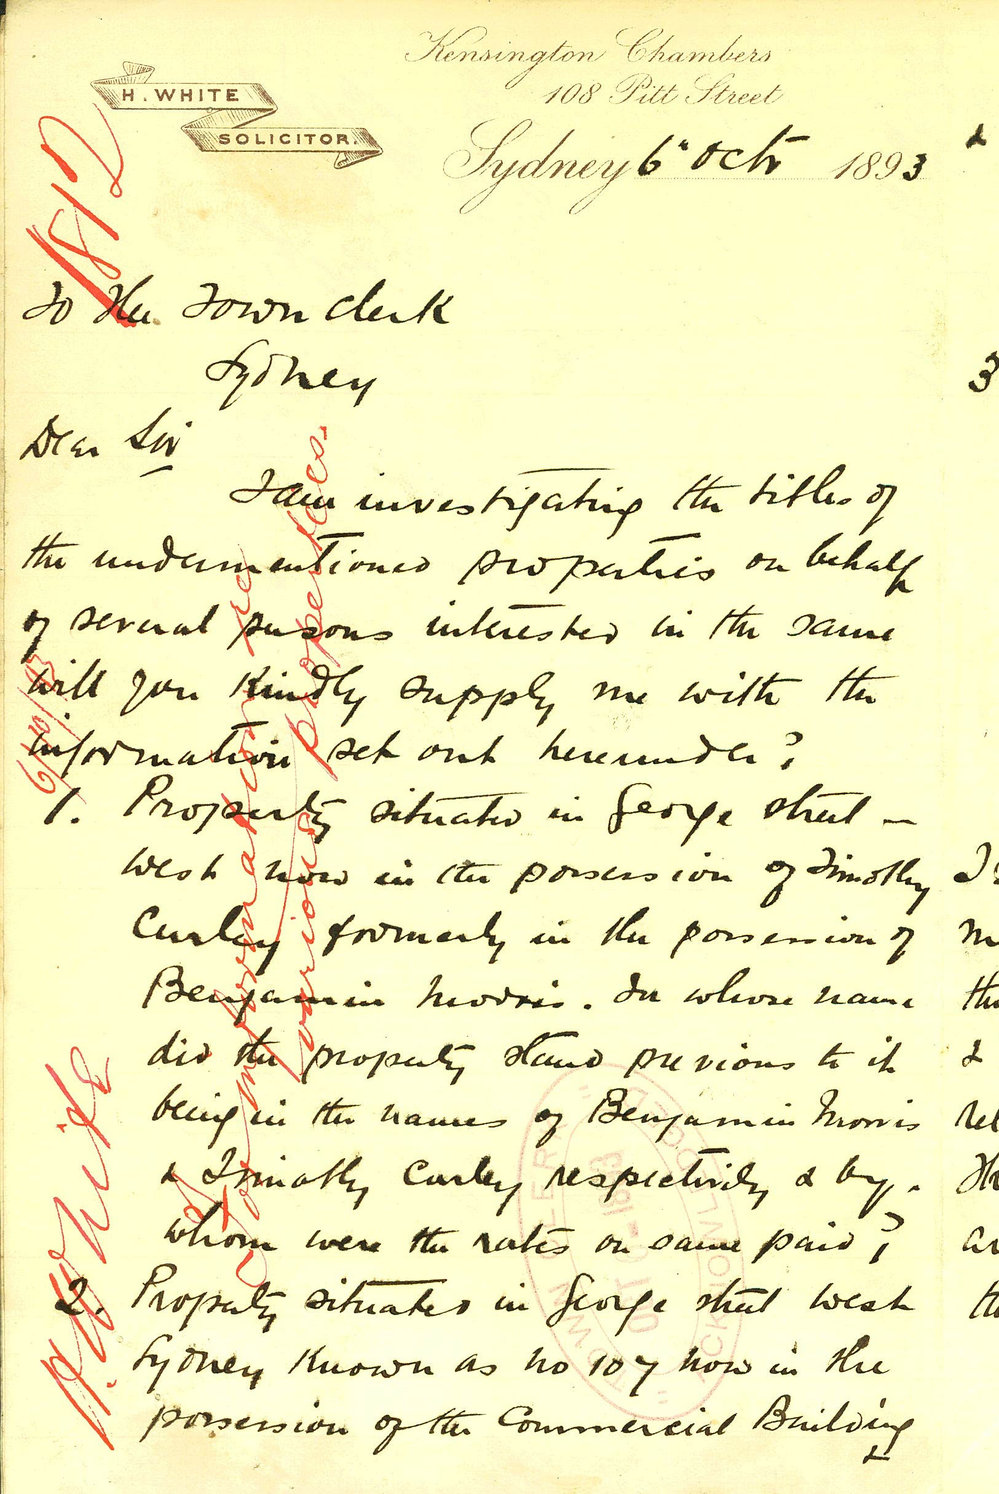 Kensington Chambers
108 Pitt Street
H. WHITE
SOLICITOR.
Sydney 6" Octr 1893
1812
To The Town Clerk
Sydney
Dear Sir
I am investigating the titles of
the undermentioned properties on behalf
of several persons interested in the same
will you kindly supply me with the
information set out hereunder?
1. Property situated in George street -
West now in the possession of Timothy
Curley formerly in the possession of
Benjamin Morris. In whose name
did the property stand previous to it
being in the names of Benjamin Morris
& Timothy Curley respectively & by
whom were the rates on same paid?
2. Property situated in George street West
Sydney Known as No 107 now in the
possession of the Commercial Building
&
H. White
For information re
various properties.
6/10/93
&
3
the
&